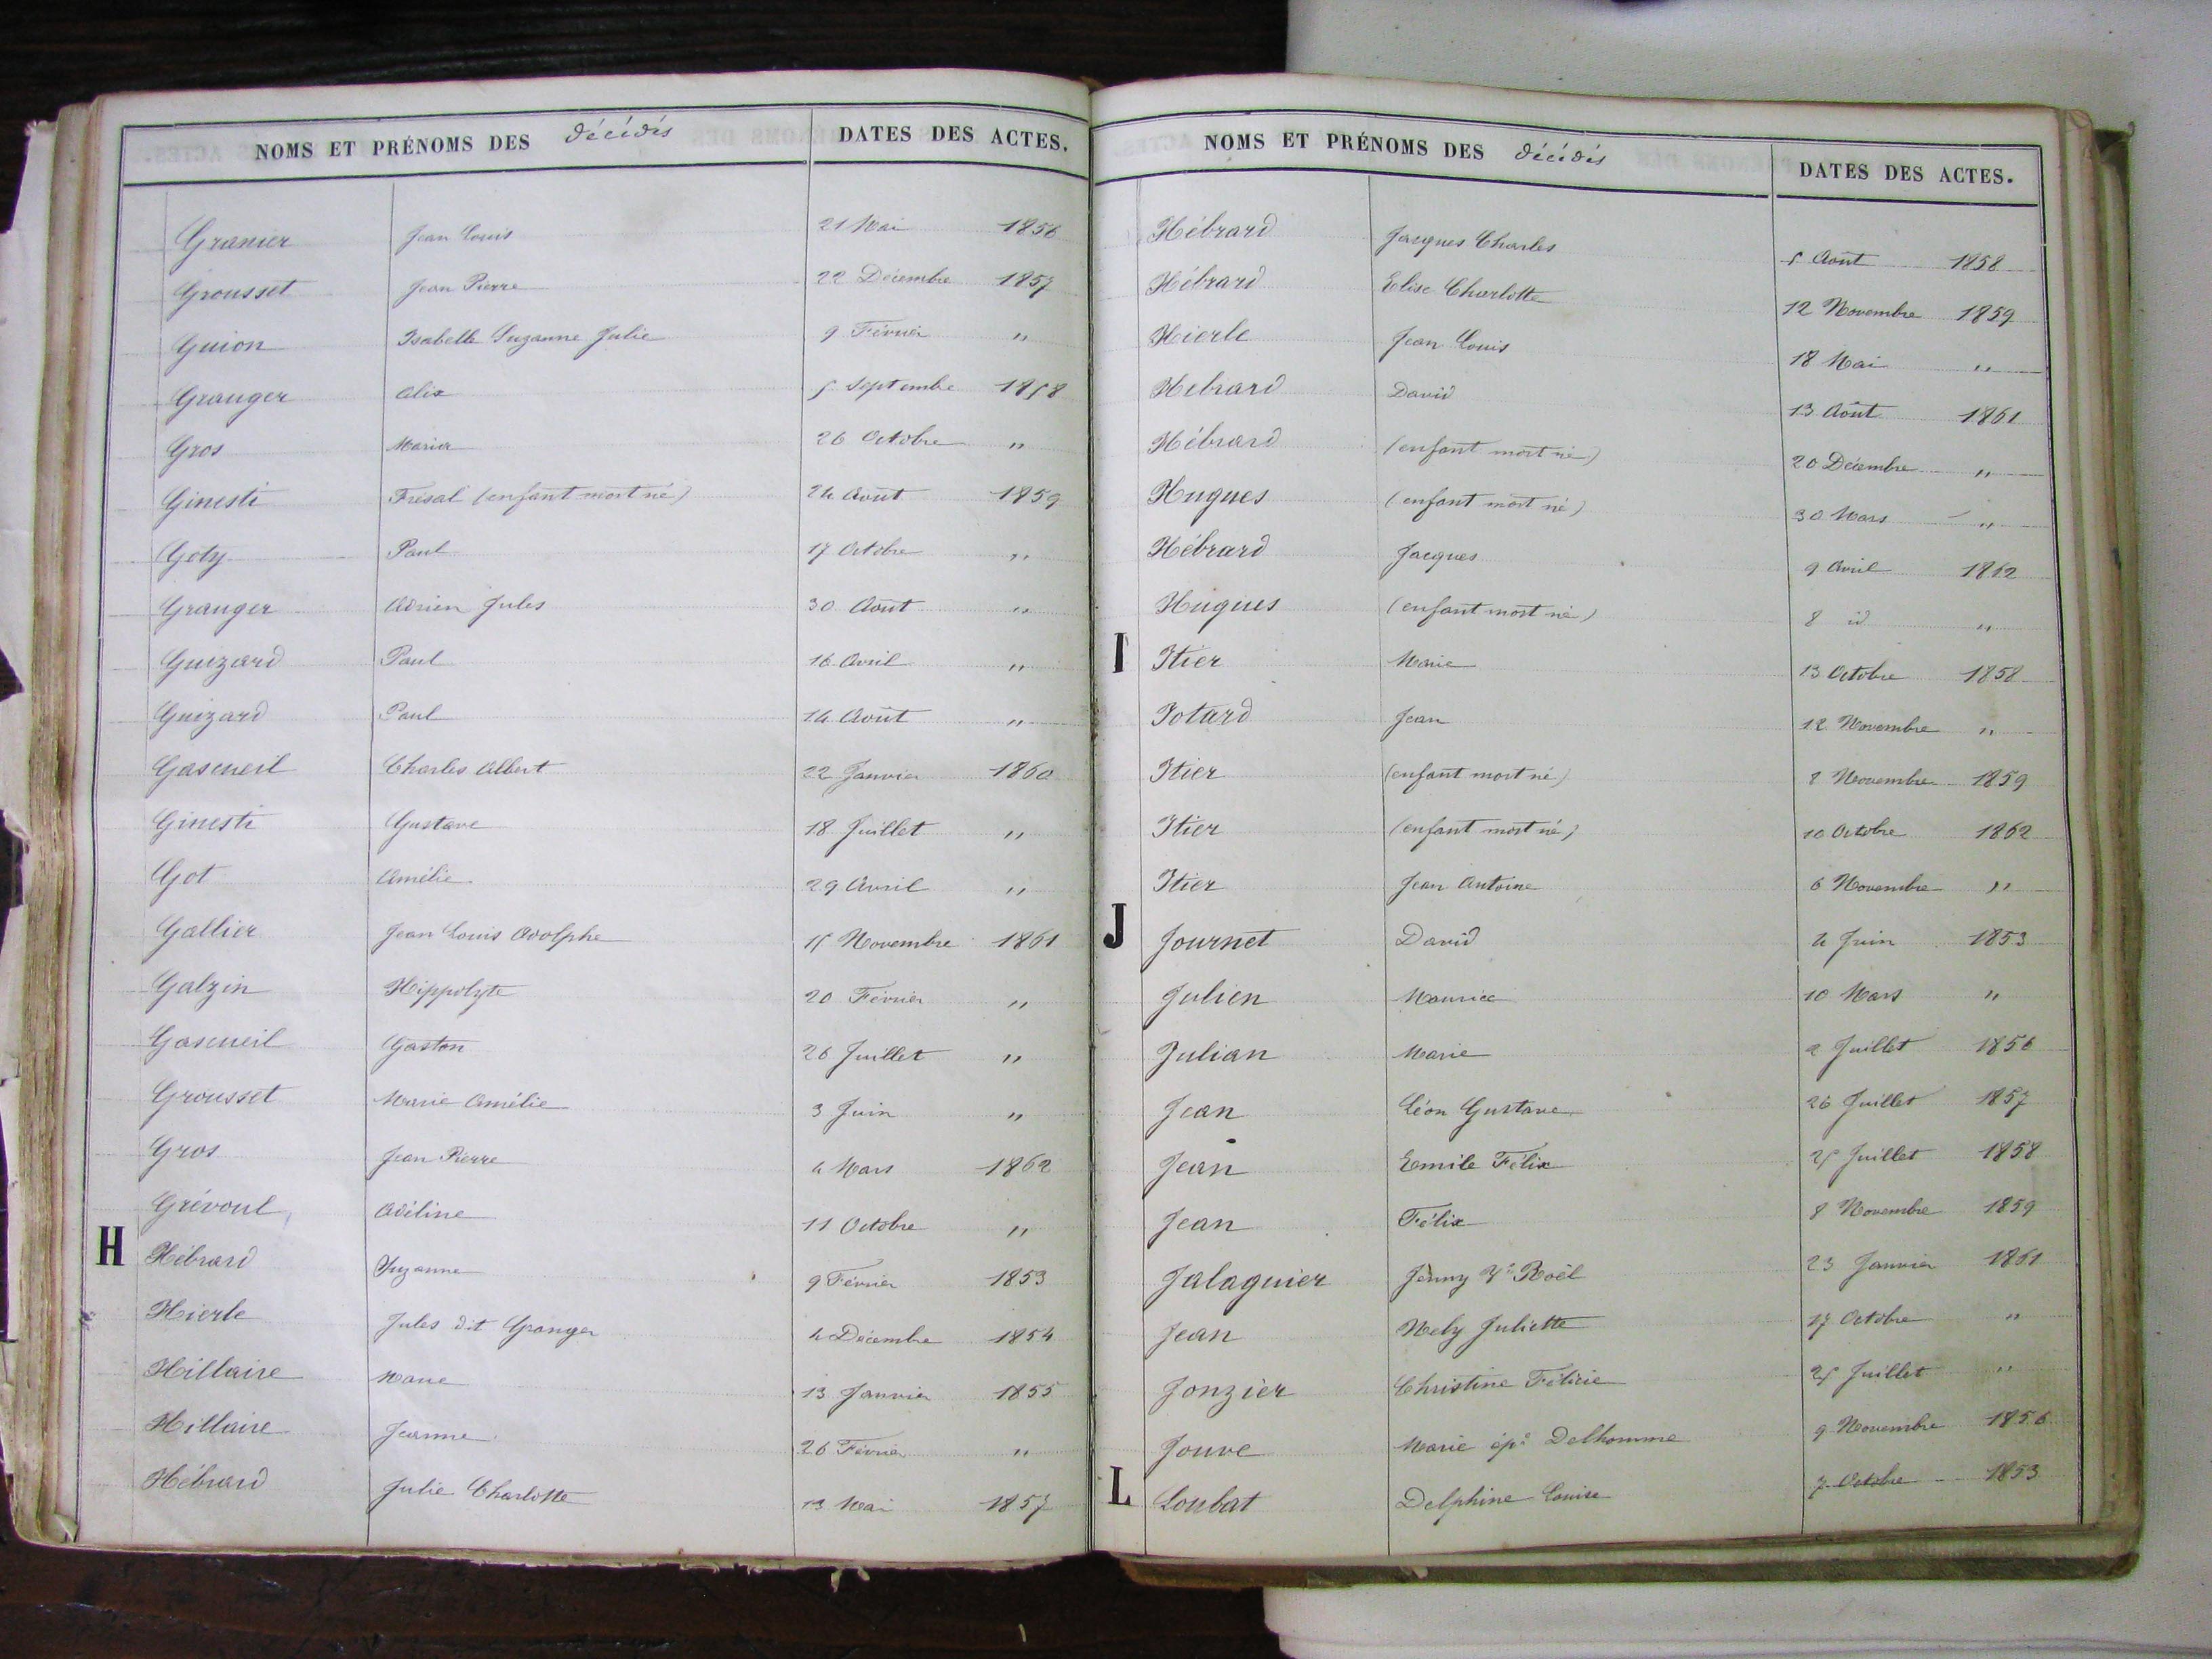 NOMS ET PRÉNOMS DES décédés DATES DES ACTES.
Granier Jean Louis 21 Mai 1856
Grousset Jean Pierre 22 Décembre 1857
Guion Isabelle Suzanne Julie 9 Février "
Granger Alix 5 Septembre 1858
Gros Maria 26 Octobre "
Ginesti Frésal (enfant mort né) 24 Août 1859
Goty Paul 17 Octobre "
Granger Adrien Jules 30 Août "
Guizard Paul 16 Avril "
Guizard Paul 14 Août "
Gascueil Charles Albert 22 Janvier 1860
Ginesti Gustave 18 Juillet "
Got Amélie 29 Avril "
Gallier Jean Louis Adolphe 15 Novembre 1861
Galzin Hippolyte 20 Février "
Gascueil Gaston 26 Juillet "
Grousset Marie Amélie 3 Juin "
Gros Jean Pierre 4 Mars 1862
Grévoul Adéline 11 Octobre "
H Hébrard Suzanne 9 Février 1853
Hierle Jules dit Granger 4 Décembre 1854
Hillaire Marie 13 Janvier 1855
Hillaire Jeanne 26 Février "
Hébrard Julie Charlotte 13 Mai 1857
NOMS ET PRÉNOMS DES décédés DATES DES ACTES.
Hébrard Jacques Charles 5 Août 1858
Hébrard Elise Charlotte 12 Novembre 1859
Hierle Jean Louis 18 Mai "
Hebrard David 13 Août 1861
Hébrard (enfant mort né) 20 Décembre "
Hugues (enfant mort né) 30 Mars "
Hébrard Jacques 9 Avril 1862
Hugues (enfant mort né) 8 id "
I Itier Marie 13 Octobre 1858
Jotard Jean 12 Novembre "
Itier (enfant mort né) 8 Novembre 1859
Itier (enfant mort né) 10 Octobre 1862
Itier Jean Antoine 6 Novembre "
J Journet David 4 Juin 1853
Julien Maurice 10 Mars "
Julian Marie 2 Juillet 1856
Jean Léon Gustave 26 Juillet 1857
Jean Emile Félix 25 Juillet 1858
Jean Félix 8 Novembre 1859
Jalaguier Jenny Vе Roël 23 Janvier 1861
Jean Nely Juliette 17 Octobre "
Jonzier Christine Félicie 25 Juillet "
Jouve Marie épe Delhomme 9 Novembre 1856
L Loubat Delphine Louise 7 Octobre 1853